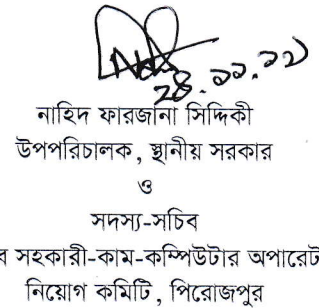 ২৪.১১.২২
নাহিদ ফারজানা সিদ্দিকী
উপপরিচালক, স্থানীয় সরকার
ও
সদস্য-সচিব
ব সহকারী-কাম-কম্পিউটার অপারেট
নিয়োগ কমিটি, পিরোজপুর